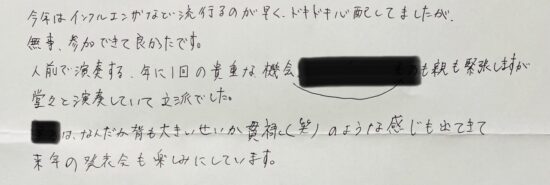 今年はインフルエンザなど流行るのが早く、ドキドキ心配してましたが、
無事、参加できて良かたです。
人前で演奏する、年に1回の貴重な機会、も親も緊張しますが
堂々と演奏していて立派でした。
は、なんだか背も大きいせいか貫禄(笑)のような感じも出てきて
来年の発表会も楽しみにしています。